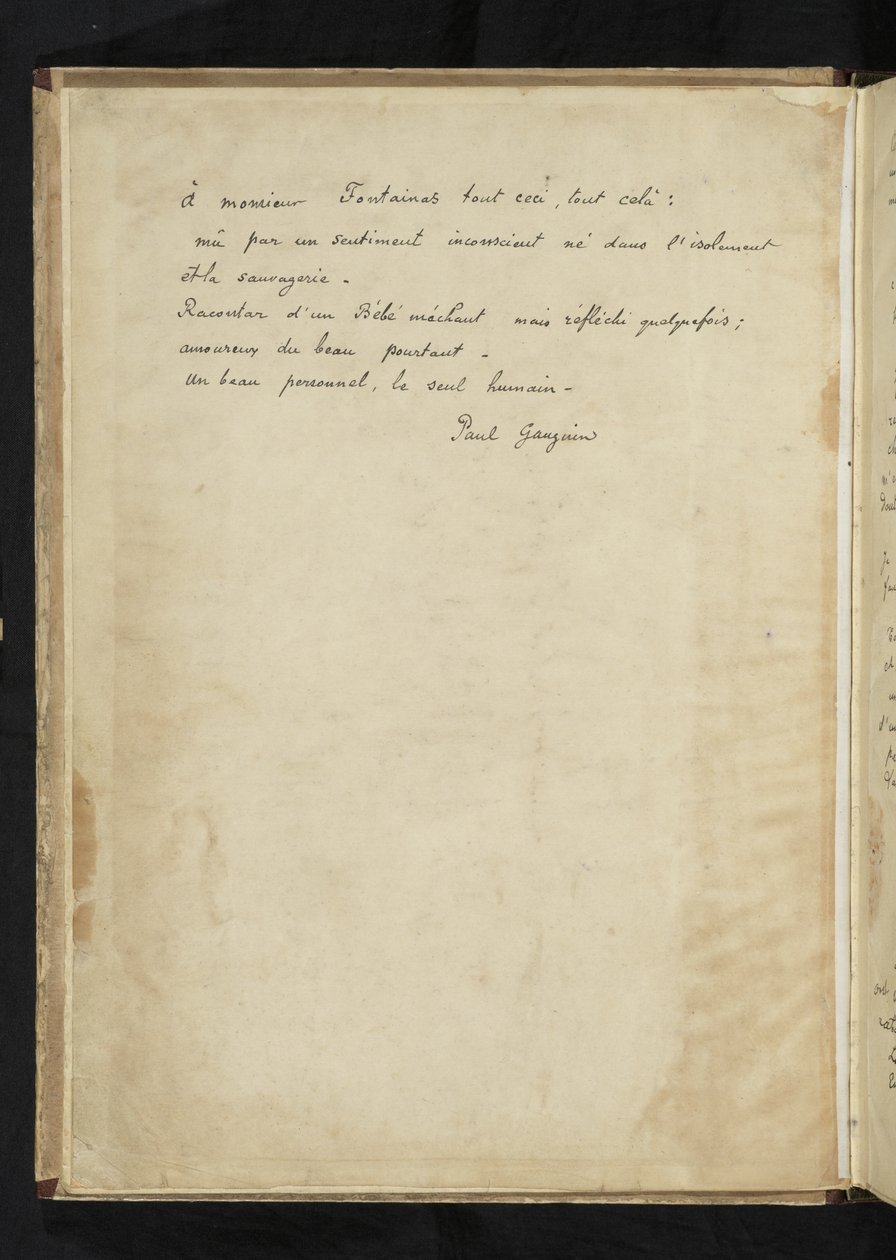 à monsieur Fontainas tout ceci, tout celà :
mû par un sentiment inconscient né dans l'isolement
et la sauvagerie -
Racontar d'un Bébé méchant mais réfléchi quelquefois ;
amoureux du beau pourtant -
Un beau personnel, le seul humain -
Paul Gauguin